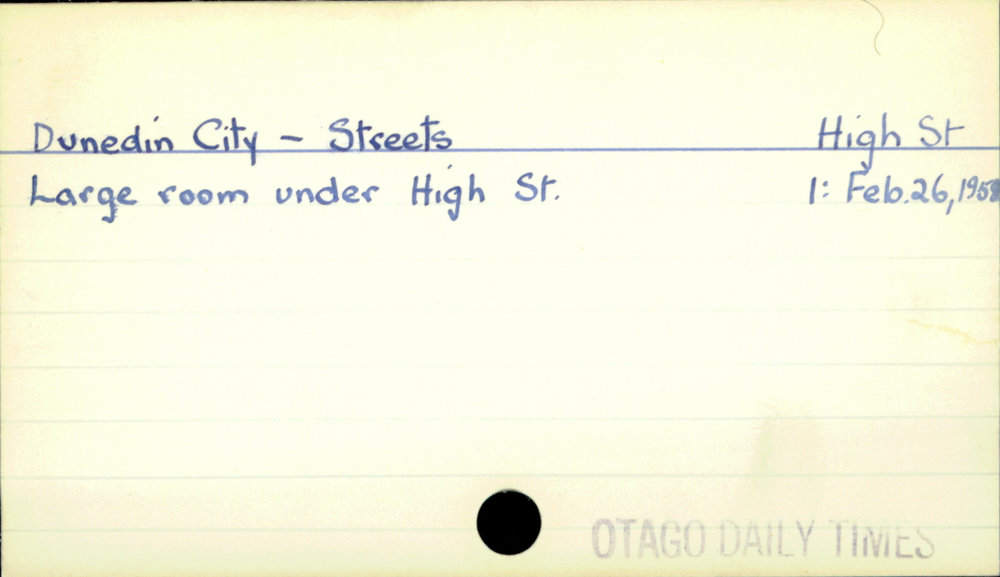 Dunedin City – Streets High St
Large room under High St. 1: Feb. 26, 1958
OTAGO DAILY TIMES